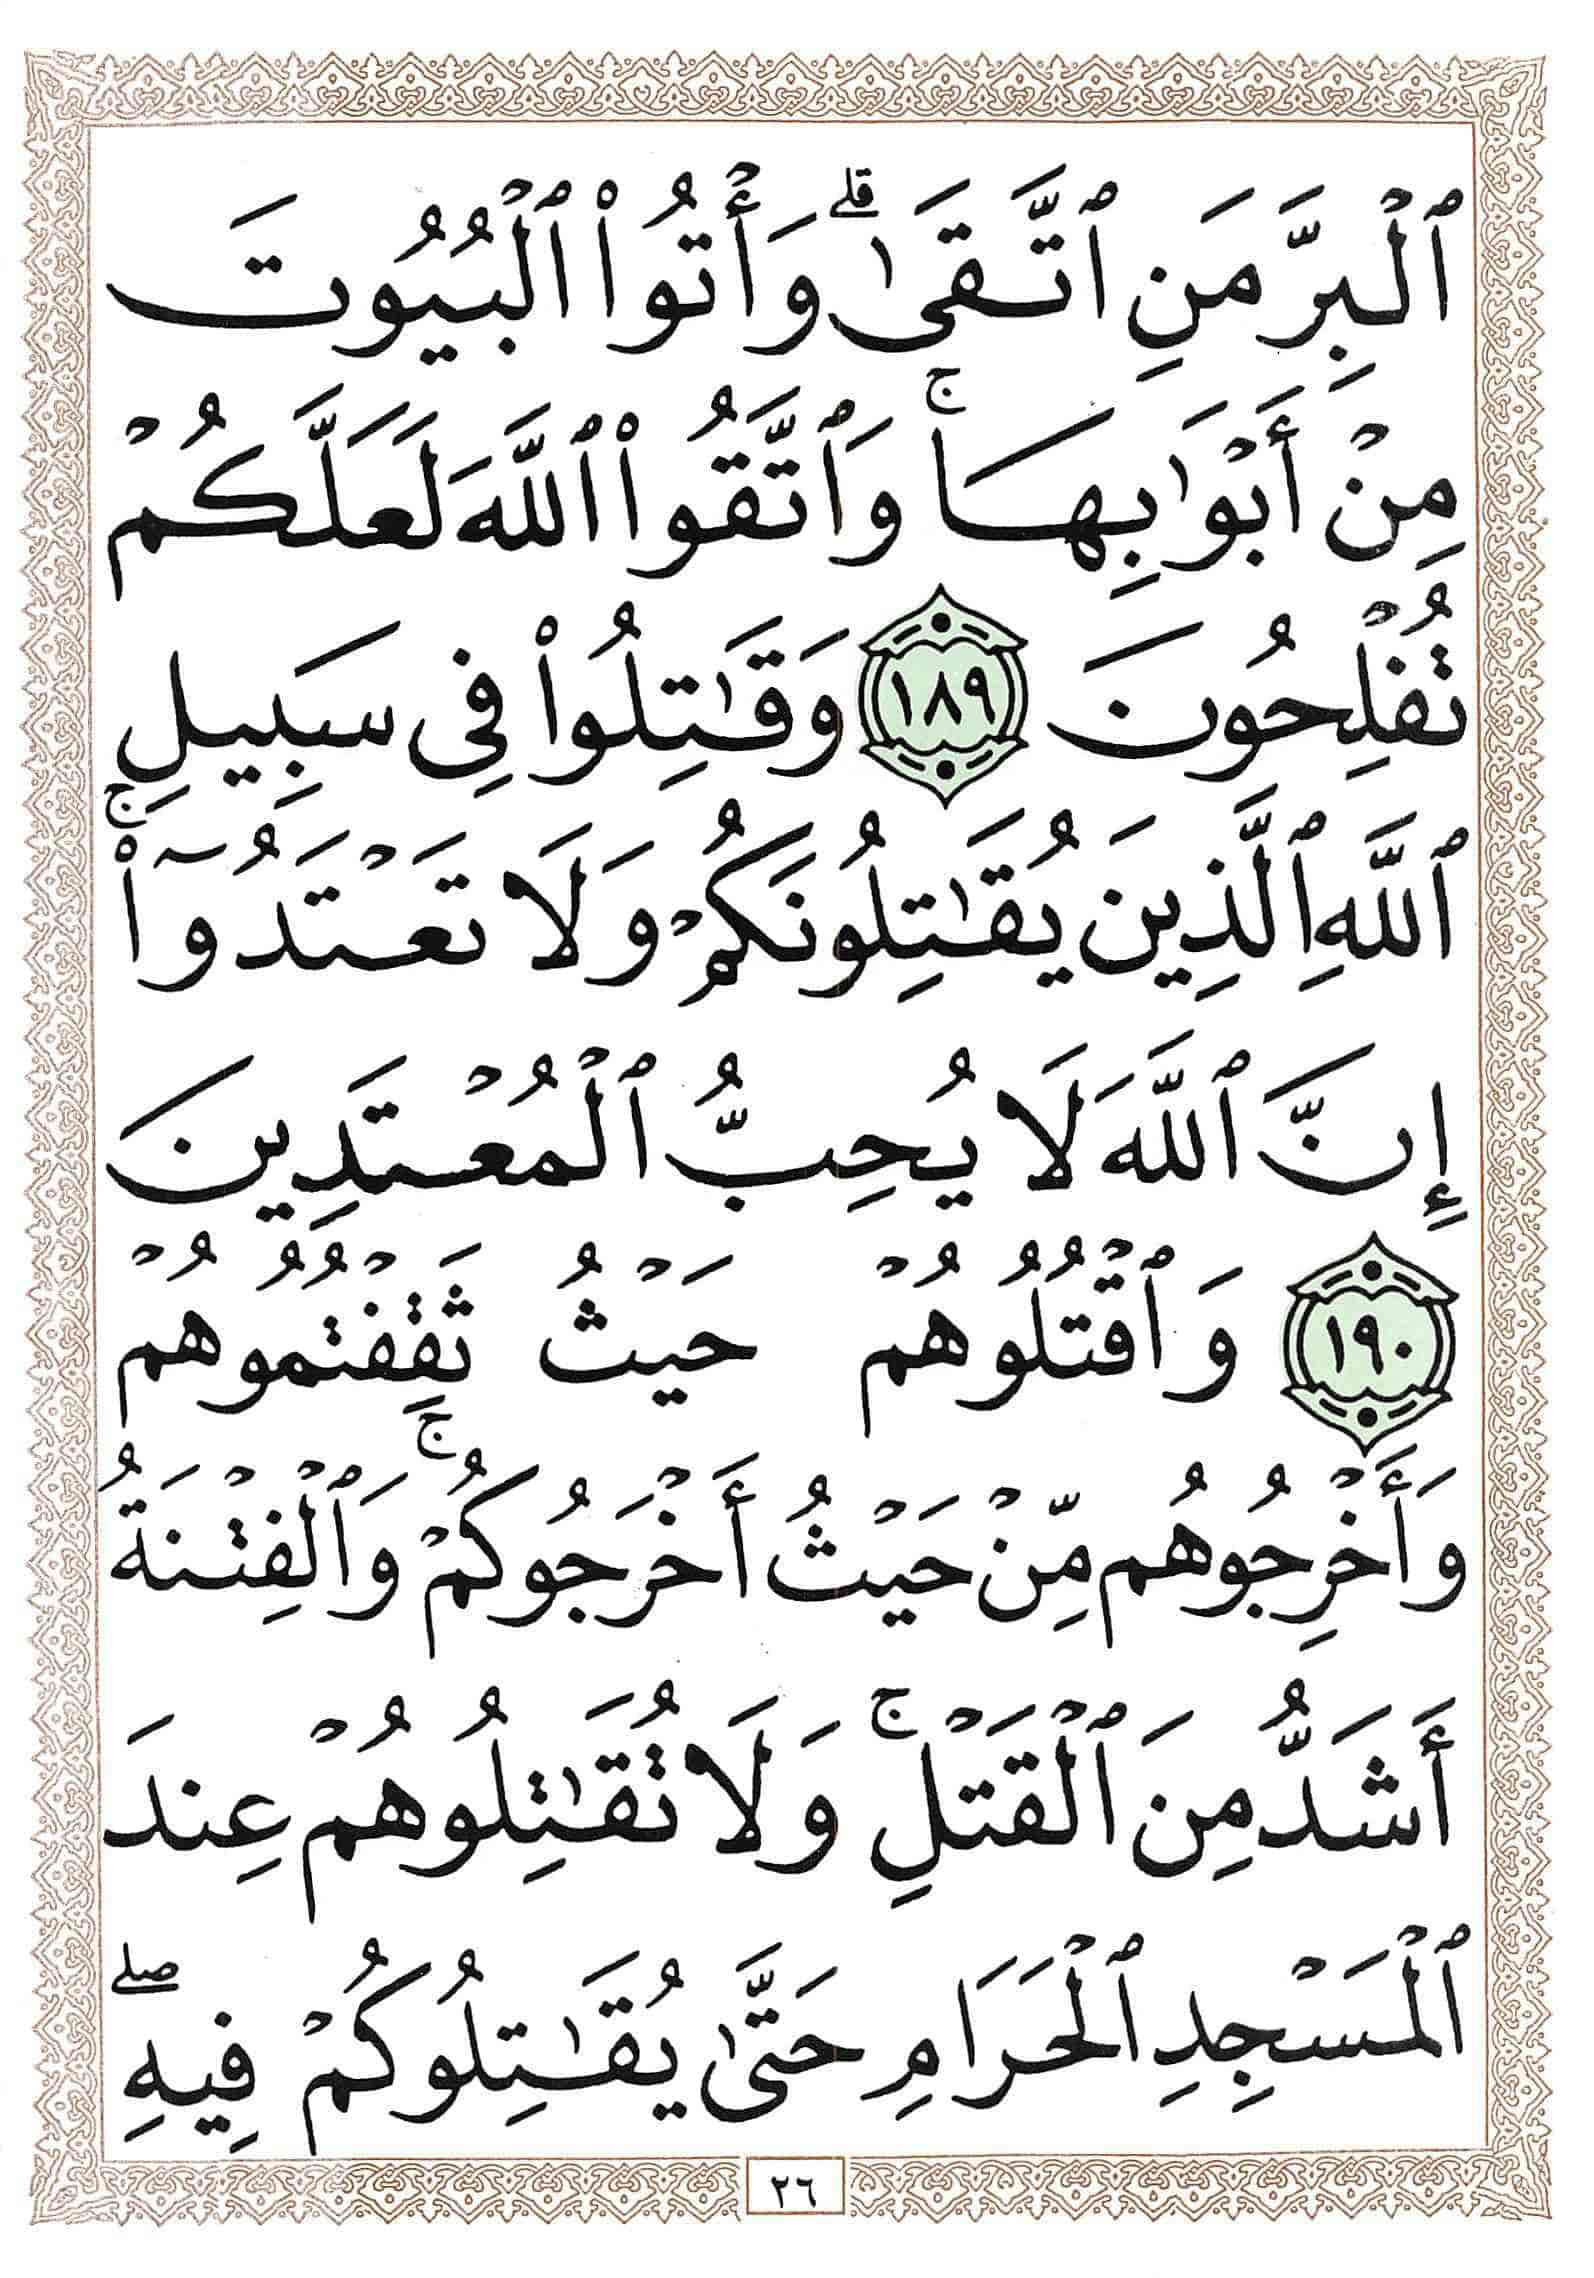 ٱلْبِرَّ مَنِ ٱتَّقَىٰ ۗ وَأْتُوا۟ ٱلْبُيُوتَ
مِنْ أَبْوَٰبِهَا ۚ وَٱتَّقُوا۟ ٱللَّهَ لَعَلَّكُمْ
تُفْلِحُونَ ١٨٩ وَقَـٰتِلُوا۟ فِى سَبِيلِ
ٱللَّهِ ٱلَّذِينَ يُقَـٰتِلُونَكُمْ وَلَا تَعْتَدُوٓا۟ ۚ
إِنَّ ٱللَّهَ لَا يُحِبُّ ٱلْمُعْتَدِينَ
١٩٠ وَٱقْتُلُوهُمْ حَيْثُ ثَقِفْتُمُوهُمْ
وَأَخْرِجُوهُم مِّنْ حَيْثُ أَخْرَجُوكُمْ ۚ وَٱلْفِتْنَةُ
أَشَدُّ مِنَ ٱلْقَتْلِ ۚ وَلَا تُقَـٰتِلُوهُمْ عِندَ
ٱلْمَسْجِدِ ٱلْحَرَامِ حَتَّىٰ يُقَـٰتِلُوكُمْ فِيهِ ۖ
٢٦